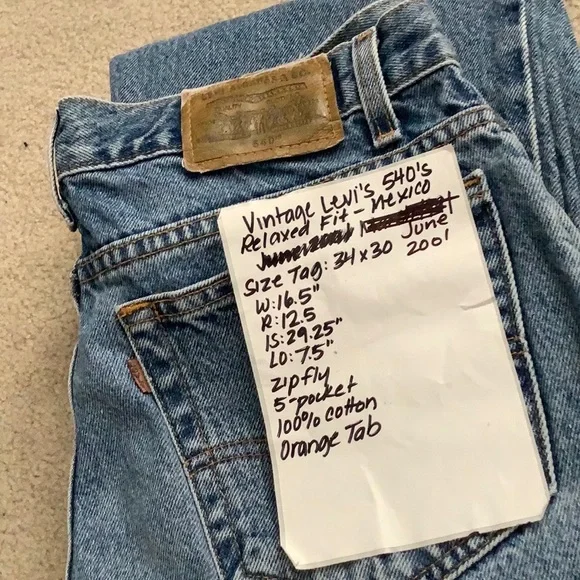 LEVI STRAUSS & CO.
540
Vintage Levi's 540's
Relaxed Fit - Mexico
June
Size Tag: 34 x 30 2001
W: 16.5"
R: 12.5
IS: 29.25"
LO: 7.5"
zip fly
5-pocket
100% cotton
Orange Tab